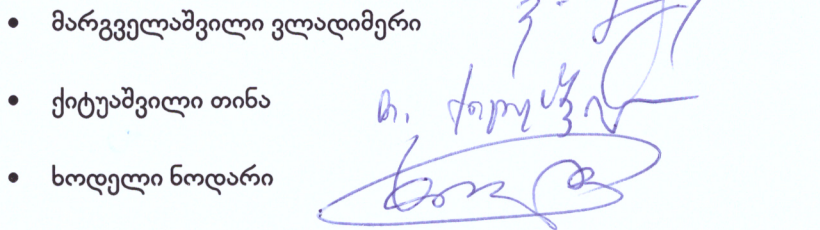 • მარგველაშვილი ვლადიმერი
• ქიტუაშვილი თინა
• ხოდელი ნოდარი